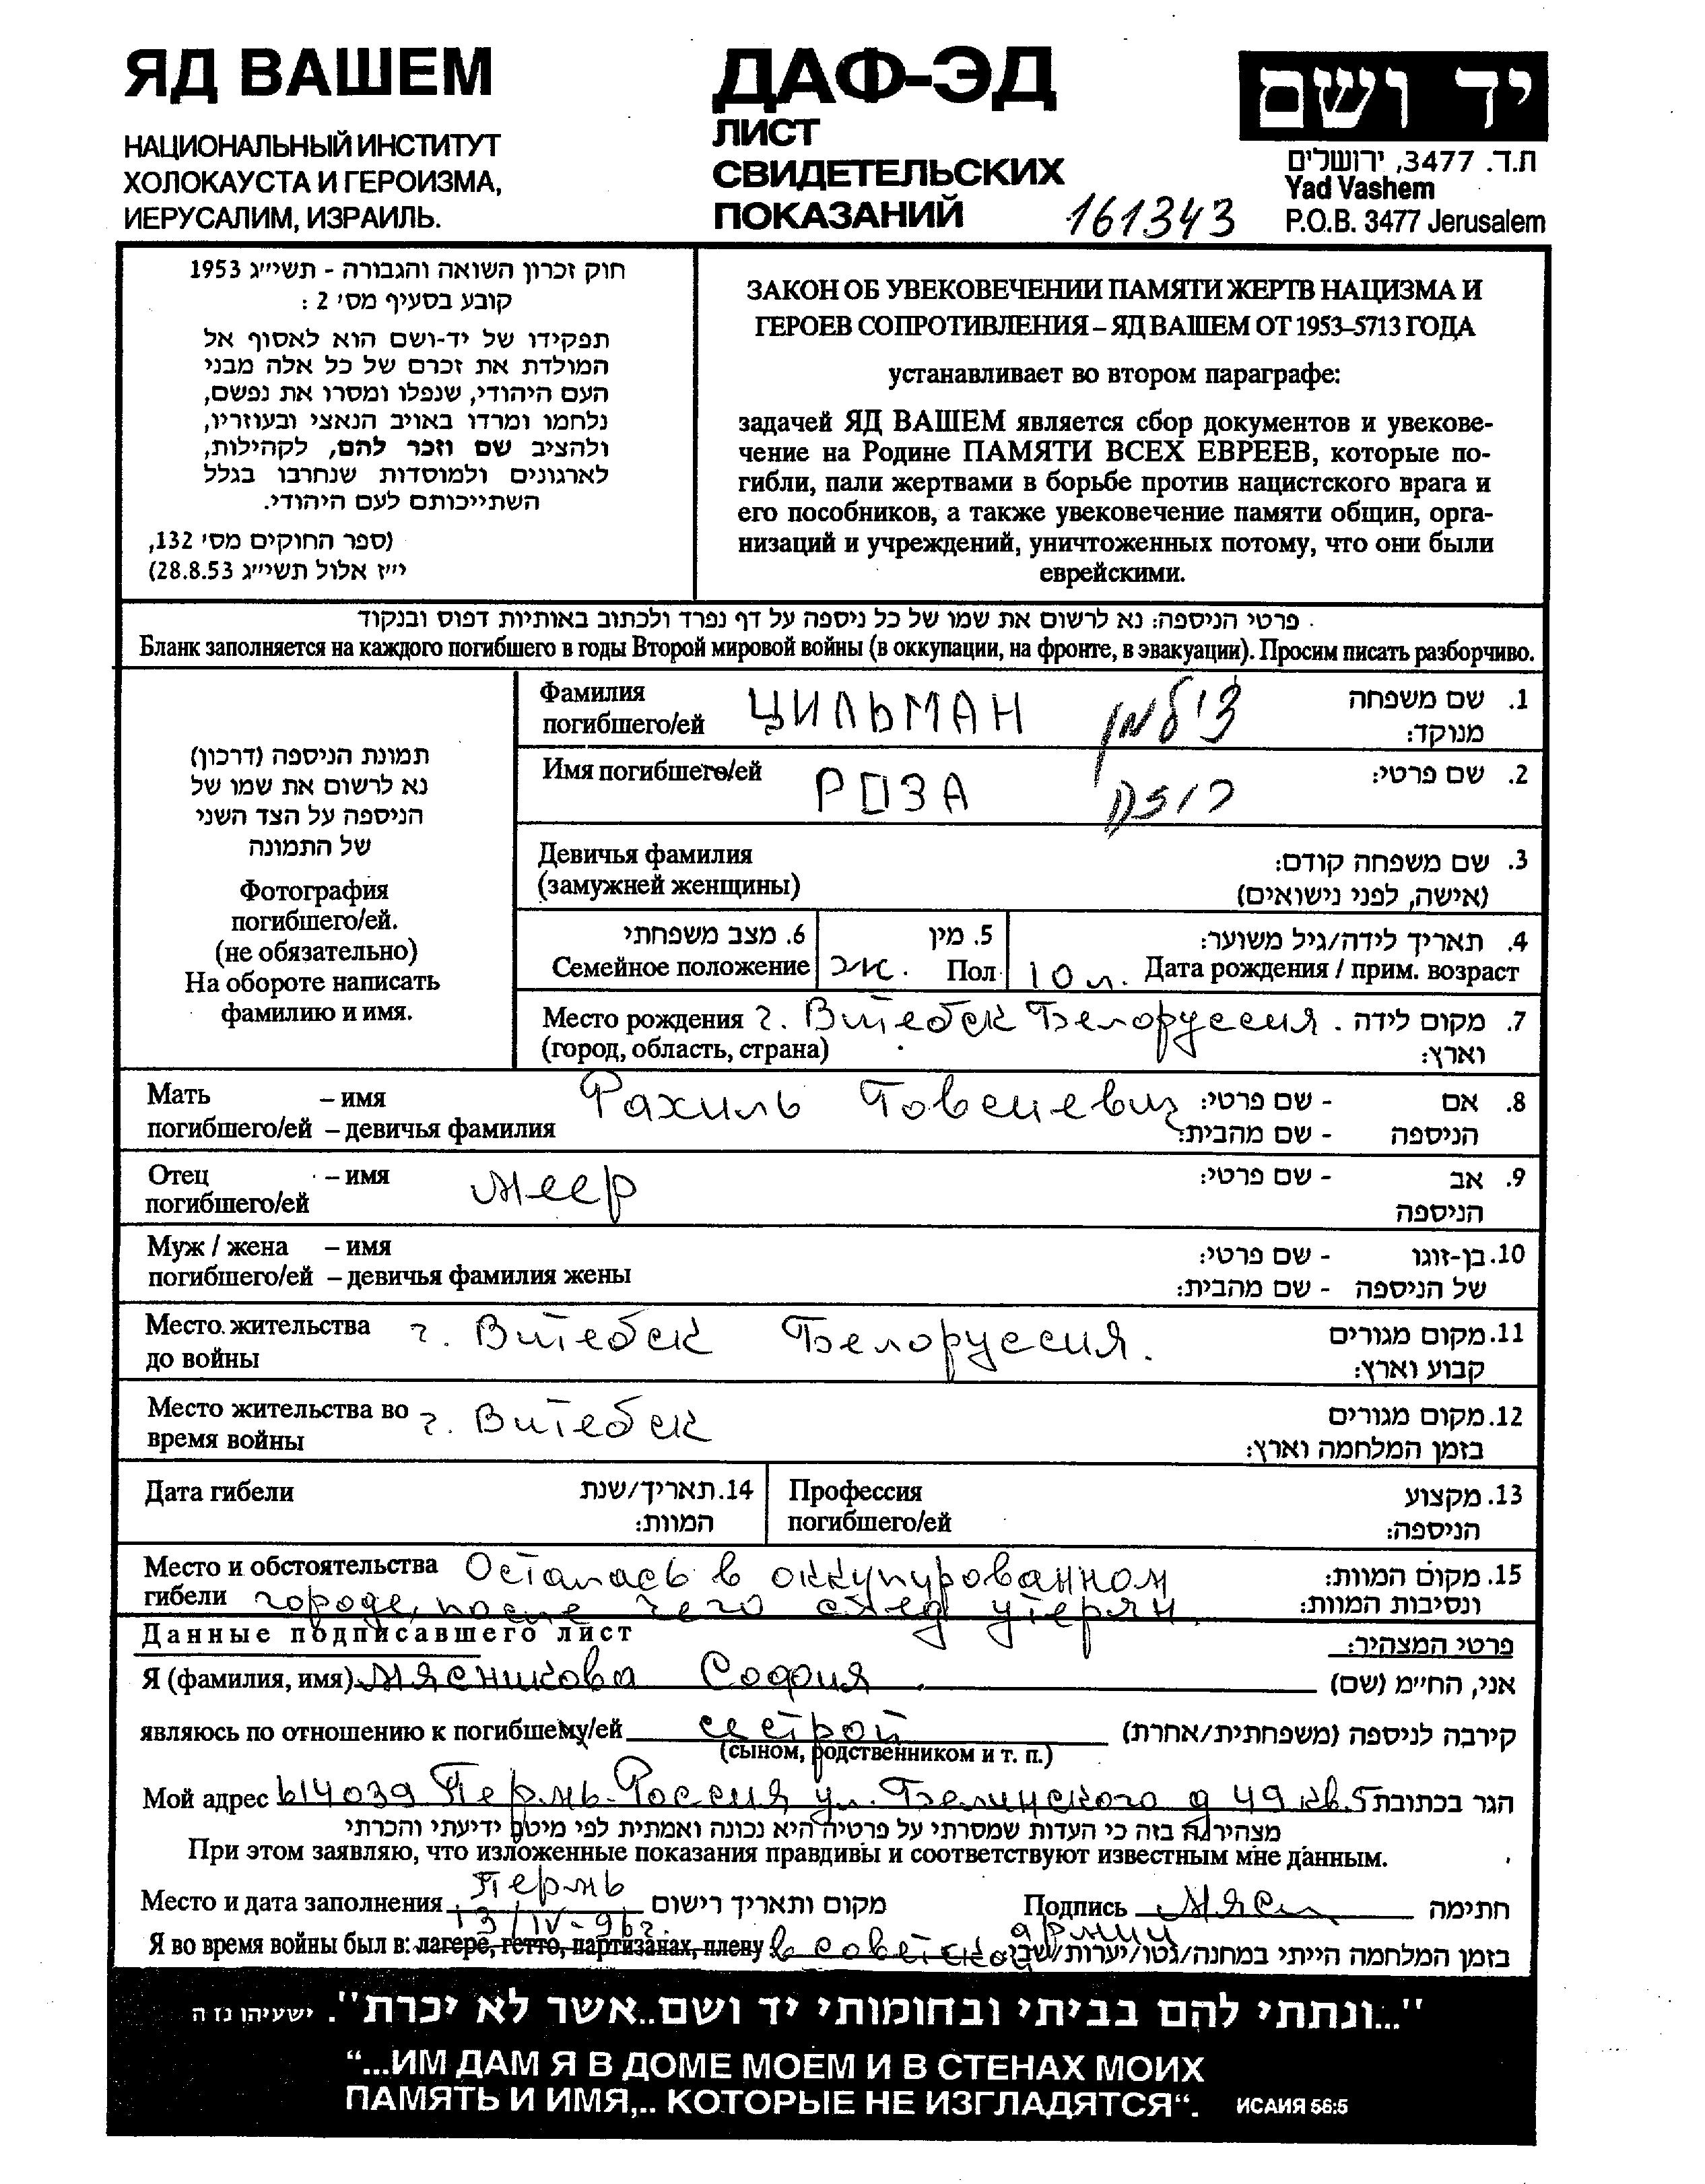 ЯД ВАШЕМ
НАЦИОНАЛЬНЫЙ ИНСТИТУТ
ХОЛОКАУСТА И ГЕРОИЗМА,
ИЕРУСАЛИМ, ИЗРАИЛЬ.
ДАФ-ЭД
ЛИСТ
СВИДЕТЕЛЬСКИХ
ПОКАЗАНИЙ
161343
יד ושם
ת.ד. 3477, ירושלים
Yad Vashem
P.O.B. 3477 Jerusalem
חוק זכרון השואה והגבורה - תשי״ג 1953
קובע בסעיף מס׳ 2 :
תפקידו של יד-ושם הוא לאסוף אל
המולדת את זכרם של כל אלה מבני
העם היהודי, שנפלו ומסרו את נפשם,
נלחמו ומרדו באויב הנאצי ובעוזריו,
ולהציב שם וזכר להם, לקהילות,
לארגונים ולמוסדות שנחרבו בגלל
השתייכותם לעם היהודי.
(ספר החוקים מס׳ 132,
י״ז אלול תשי״ג 28.8.53)
ЗАКОН ОБ УВЕКОВЕЧЕНИИ ПАМЯТИ ЖЕРТВ НАЦИЗМА И
ГЕРОЕВ СОПРОТИВЛЕНИЯ – ЯД ВАШЕМ ОТ 1953–5713 ГОДА
устанавливает во втором параграфе:
задачей ЯД ВАШЕМ является сбор документов и увекове-
чение на Родине ПАМЯТИ ВСЕХ ЕВРЕЕВ, которые по-
гибли, пали жертвами в борьбе против нацистского врага и
его пособников, а также увековечение памяти общин, орга-
низаций и учреждений, уничтоженных потому, что они были
еврейскими.
פרטי הניספה: נא לרשום את שמו של כל ניספה על דף נפרד ולכתוב באותיות דפוס ובנקוד
Бланк заполняется на каждого погибшего в годы Второй мировой войны (в оккупации, на фронте, в эвакуации). Просим писать разборчиво.
תמונת הניספה (דרכון)
נא לרשום את שמו של
הניספה על הצד השני
של התמונה
Фотография
погибшего/ей.
(не обязательно)
На обороте написать
фамилию и имя.
Фамилия
погибшего/ей ЦИЛЬМАН צילמן
1. שם משפחה
מנוקד:
Имя погибшего/ей РОЗА רוזה
2. שם פרטי:
Девичья фамилия
(замужней женщины)
3. שם משפחה קודם:
(אישה, לפני נישואים)
6. מצב משפחתי
Семейное положение
5. מין
ж. Пол
4. תאריך לידה/גיל משוער:
10 л. Дата рождения / прим. возраст
Место рождения г. Витебск Белоруссия.
(город, область, страна)
7. מקום לידה
וארץ:
Мать – имя Рахиль Говсиевич
погибшего/ей – девичья фамилия
8. אם - שם פרטי:
הניספה - שם מהבית:
Отец – имя Меер
погибшего/ей
9. אב - שם פרטי:
הניספה
Муж / жена – имя
погибшего/ей – девичья фамилия жены
10. בן-זוגו - שם פרטי:
של הניספה - שם מהבית:
Место жительства г. Витебск Белоруссия.
до войны
11. מקום מגורים
קבוע וארץ:
Место жительства во г. Витебск
время войны
12. מקום מגורים
בזמן המלחמה וארץ:
Дата гибели
14. תאריך/שנת
המוות:
Профессия
погибшего/ей
13. מקצוע
הניספה:
Место и обстоятельства Осталась в оккупированном
гибели городе, после чего след утерян.
15. מקום המוות:
ונסיבות המוות:
Данные подписавшего лист
פרטי המצהיר:
Я (фамилия, имя) Мясникова София
אני, הח״מ (שם)
являюсь по отношению к погибшему/ей сестрой
קירבה לניספה (משפחתית/אחרת)
(сыном, родственником и т. п.)
Мой адрес 614039 Пермь-Россия ул. Белинского д 49 кв. 5 הגר בכתובת
מצהיר/ה בזה כי העדות שמסרתי על פרטיה היא נכונה ואמתית לפי מיטב ידיעתי והכרתי
При этом заявляю, что изложенные показания правдивы и соответствуют известным мне данным.
Место и дата заполнения Пермь מקום ותאריך רישום
13/IV-96г.
Подпись Мясн חתימה
Я во время войны был в: лагере, гетто, партизанах, плену в советской армии
בזמן המלחמה הייתי במחנה/גטו/יערות/שבי
"...ונתתי להם בביתי ובחומותי יד ושם..אשר לא יכרת". ישעיהו נז ה
“...ИМ ДАМ Я В ДОМЕ МОЕМ И В СТЕНАХ МОИХ
ПАМЯТЬ И ИМЯ,.. КОТОРЫЕ НЕ ИЗГЛАДЯТСЯ“. ИСАИЯ 56:5